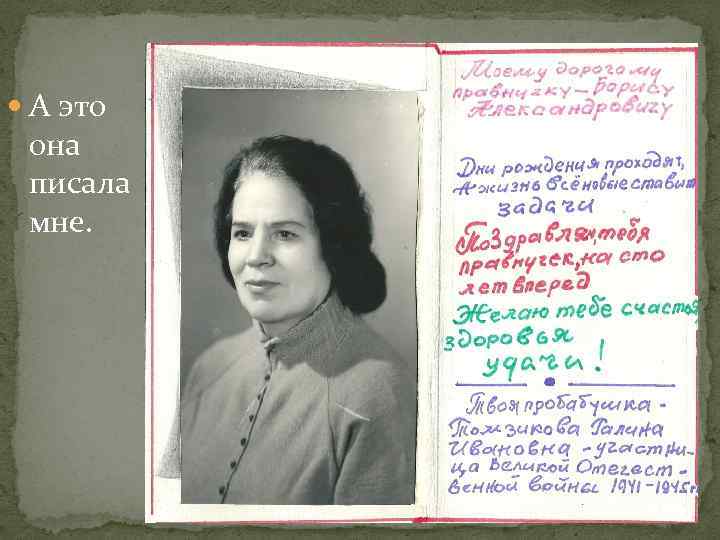 А это
она
писала
мне.
Моему дорогому
правнучку – Борису
Александровичу
Дни рождения проходят,
А жизнь всё новые ставит
задачи
Поздравляю тебя
правнучек, на сто
лет вперед
Желаю тебе счастья,
здоровья
удачи!
Твоя пробабушка -
Томзикова Галина
Ивановна - участни-
ца Великой Отечест-
венной войны 1941-1945гг